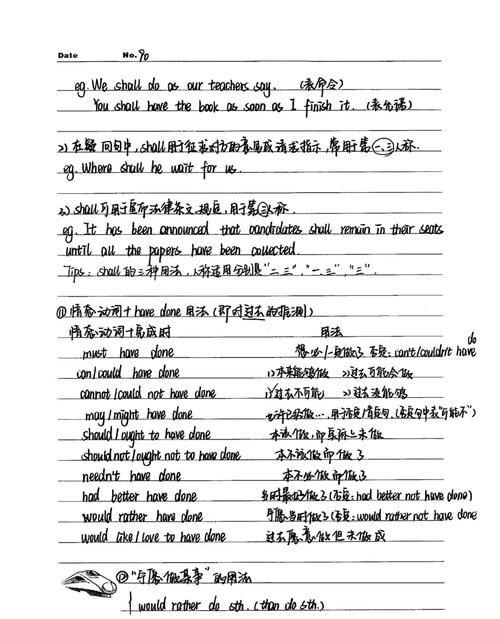 Date No. 90
eg. We shall do as our teachers say. (表命令)
You shall have the book as soon as I finish it. (表允诺)
2) 在疑问句中, shall用于征求对方的意见或请求指示, 常用于第一、三人称.
eg. Where shall he wait for us.
3) shall可用于宣布法律条文、规定, 用于第三人称.
eg. It has been announced that candidates shall remain in their seats
until all the papers have been collected.
Tips: shall的三种用法, 人称适用分别是"二、三", "一、三", "三".
⑪ 情态动词+have done 用法 (即对过去的推测)
情态动词+完成时 用法
must have done 想必/一定做了 否定: can't/couldn't have do
can/could have done 1)本来能够做 2)过去可能会做
cannot/could not have done 1)过去不可能 2)过去没能够
may/might have done 也许已经做…, 用于肯定/否定句, (否定句中表"可能不")
should/ought to have done 本该做, 而实际上未做
should not/ought not to have done 本不该做而做了
needn't have done 本不必做而做了
had better have done 当时最好做了(否定: had better not have done)
would rather have done 宁愿当时做了(否定: would rather not have done
would like/love to have done 过去愿意做但未做成
⑫ "宁愿做某事"的用法
would rather do sth. (than do sth.)